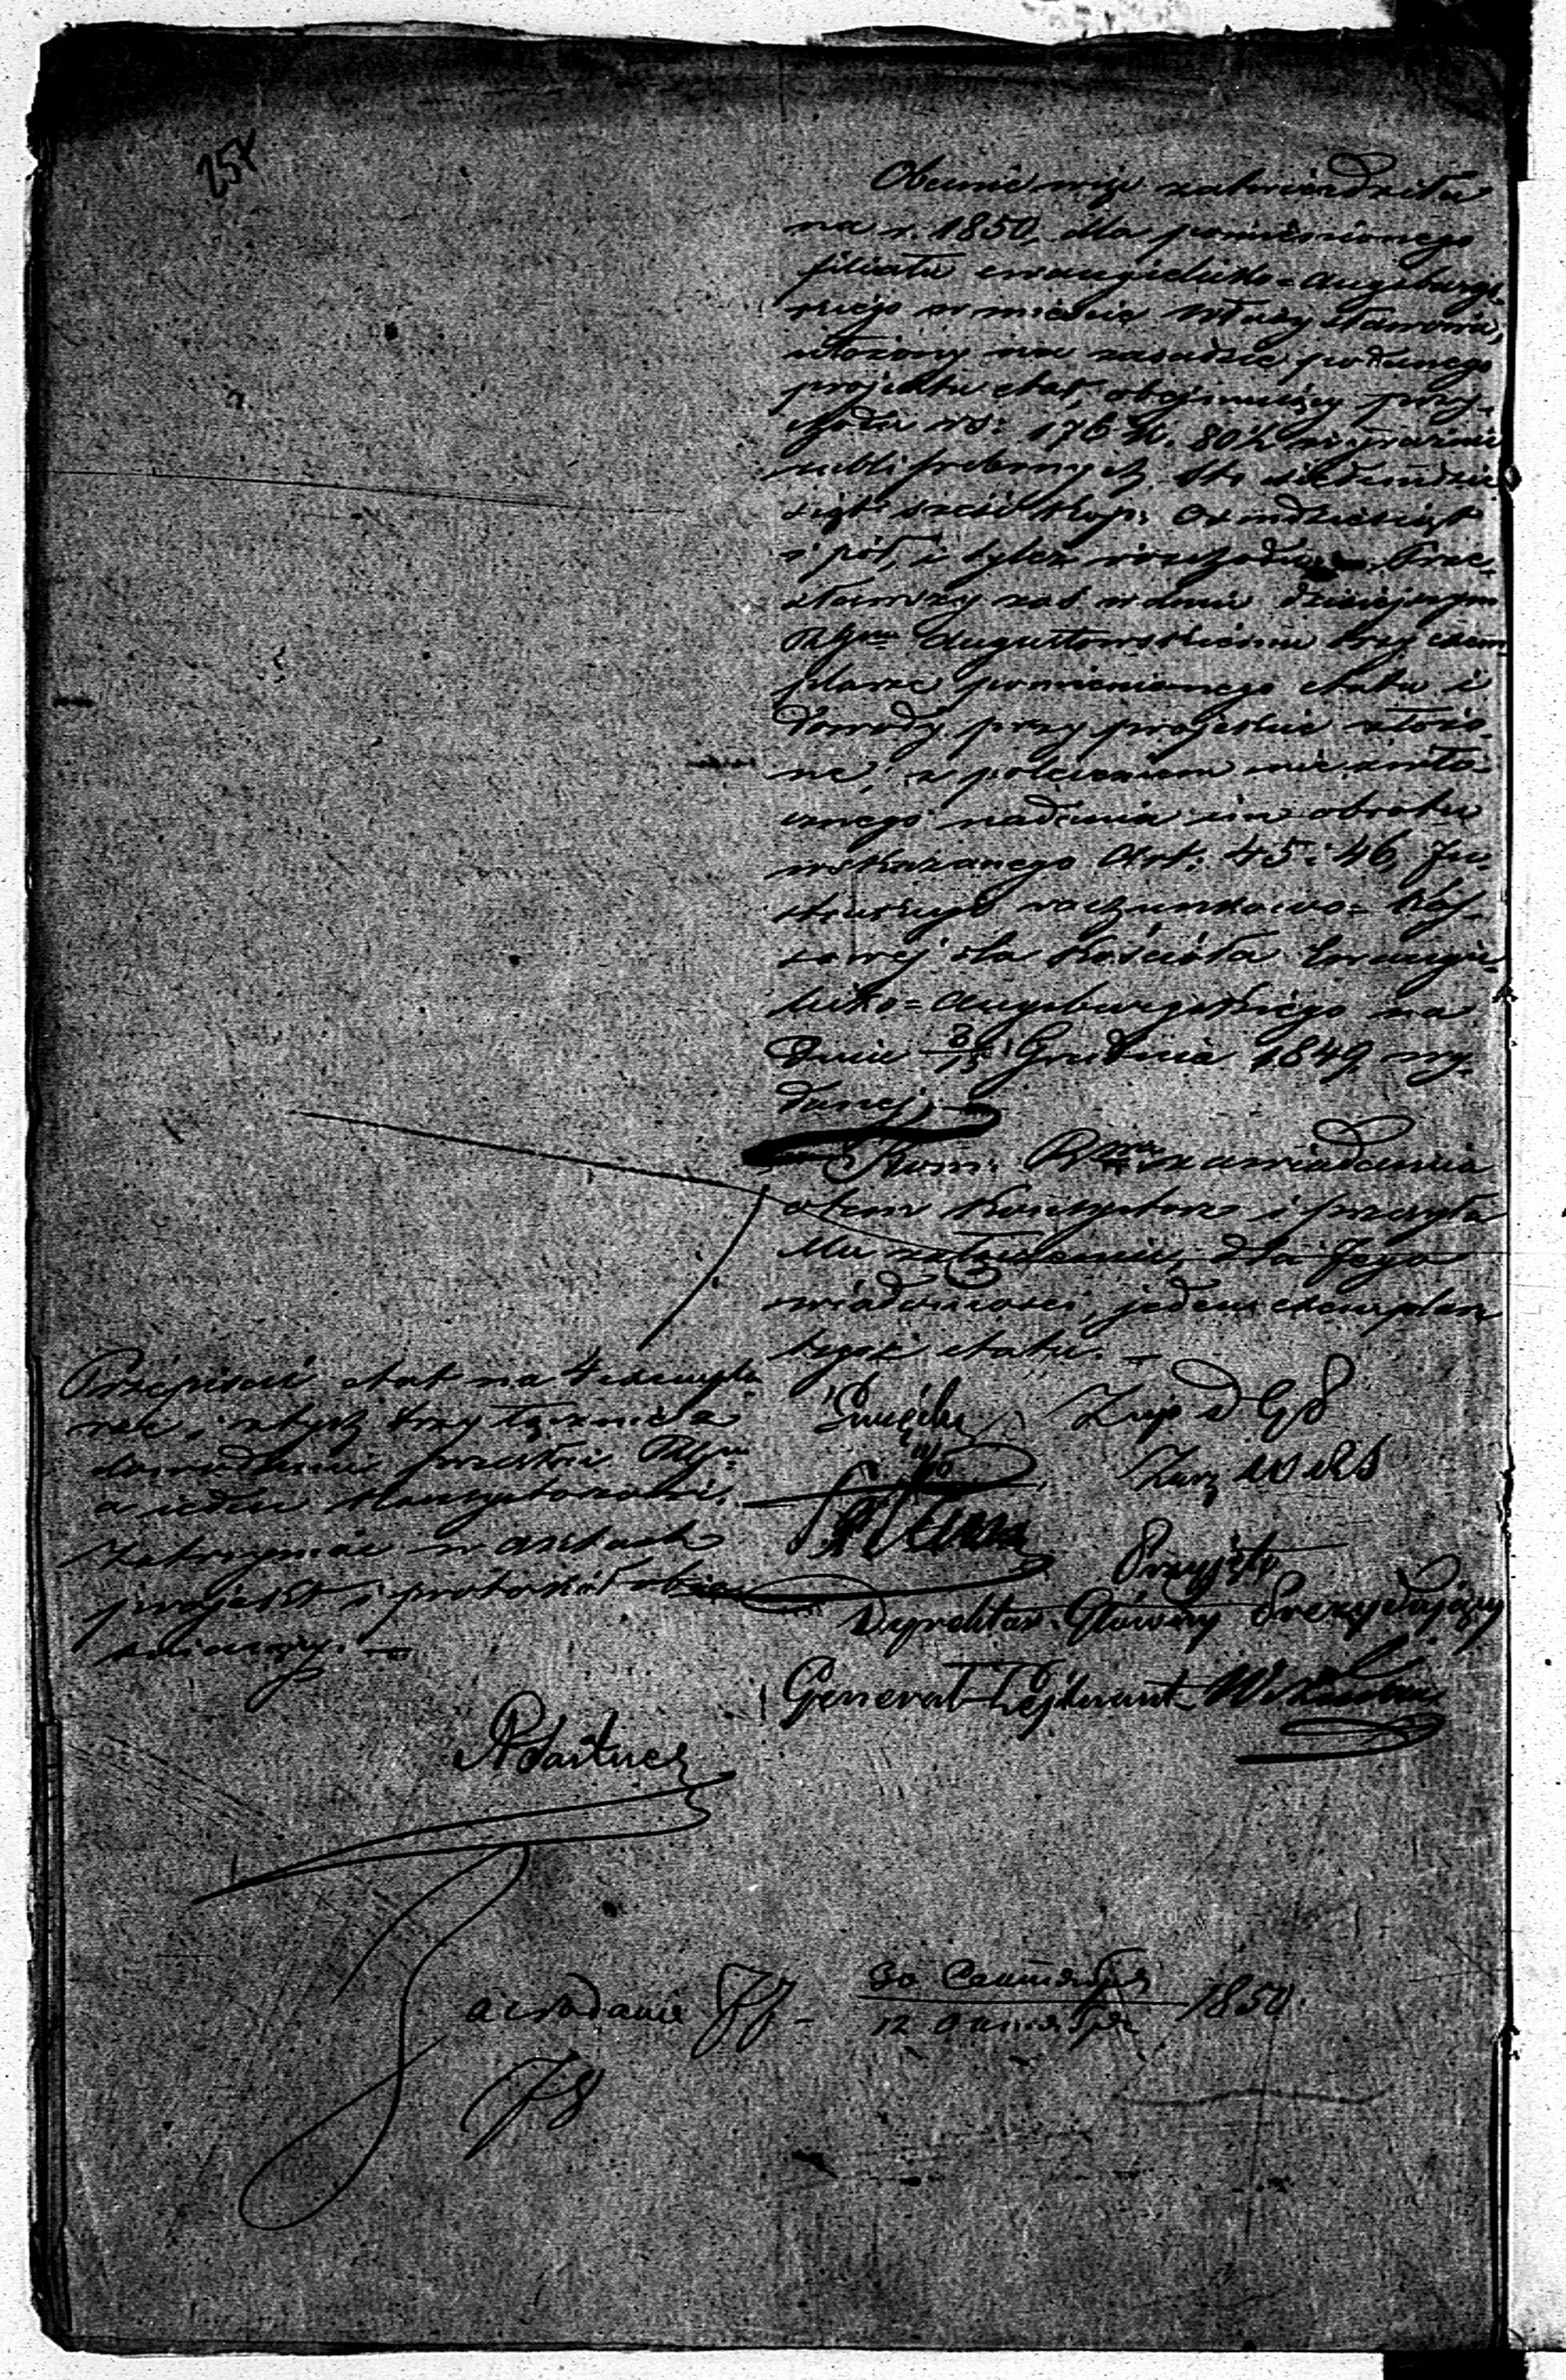 257
Obecnie więc zatwierdziła
na r. 1850, dla pomienionego
filiału ewangelicko=augsburgs=
kiego w mieście Władysławowie,
ułożony na zasadzie podanego
projektu etat, obejmujący przy=
chodu rs: 176 k. 80½ wyraźnie
rubli srebrnych sto siedmdzie
siąt sześć kop: ośmdziesiąt
i pół, i tyleż rozchodu. Prze=
sławszy zaś w dniu dzisiejszym
Augustowskiemu trzy exem
plarze pomienionego etatu i
dowody przy projekcie złożo=
ne, z poleceniem niezwło=
cznego nadania im obrotu
wskazanego Art: 45 i 46, In=
strukcyi rachunkowo= kas=
sowej dla Kościoła Ewangie=
licko=Augsburgskiego na
dniu 3/15 Grudnia 1849 wy=
danej,
Kom: zawiadamia
o tem Konsystorz i przesyła
Mu w załączeniu, dla Jego
wiadomości, jeden exemplarz
tegoż etatu.
Przepisać etat na 4 exempla
rze, i z tych trzy łącznie z
dowodami przesłać
a jeden Konsystorzowi.
Zatrzymać w aktach
projekt i protokół
Przyjęto
Dyrektor Główny Prezydujący
Generał Lejtnant
30 Сентября
12 Октября 1850.